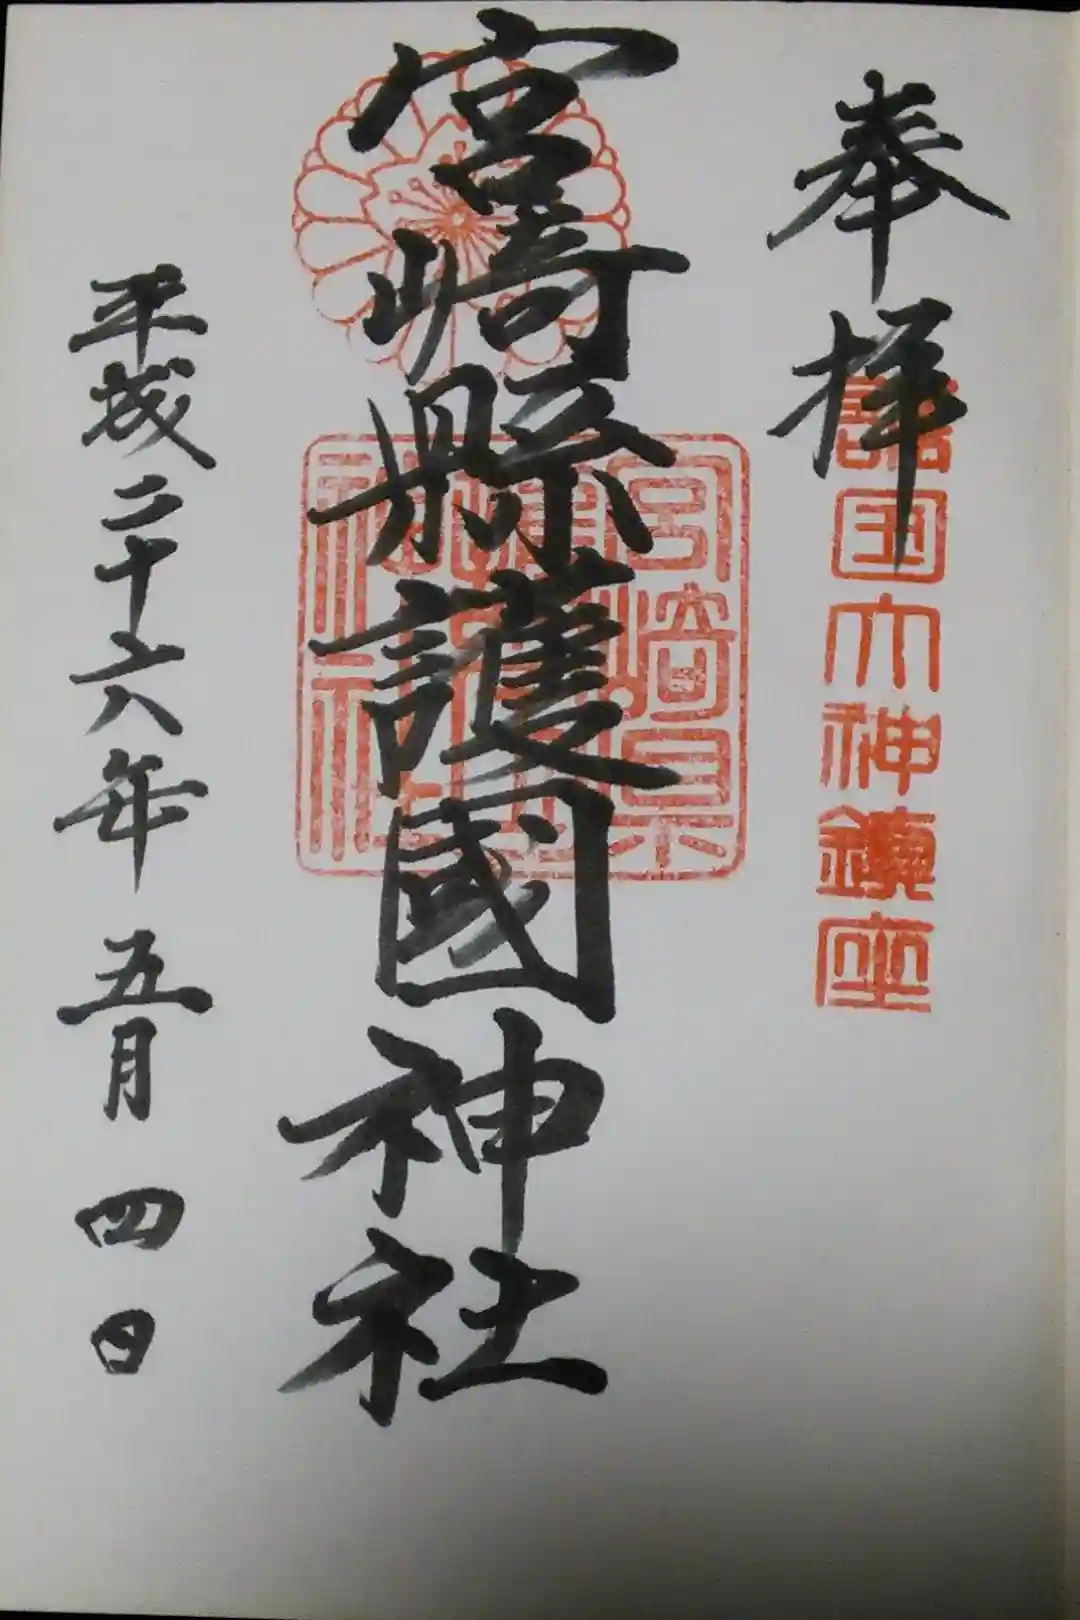 奉拝
護国大神鎮座
宮崎縣護國神社
宮崎県護国神社
平成二十六年 五月 四 日